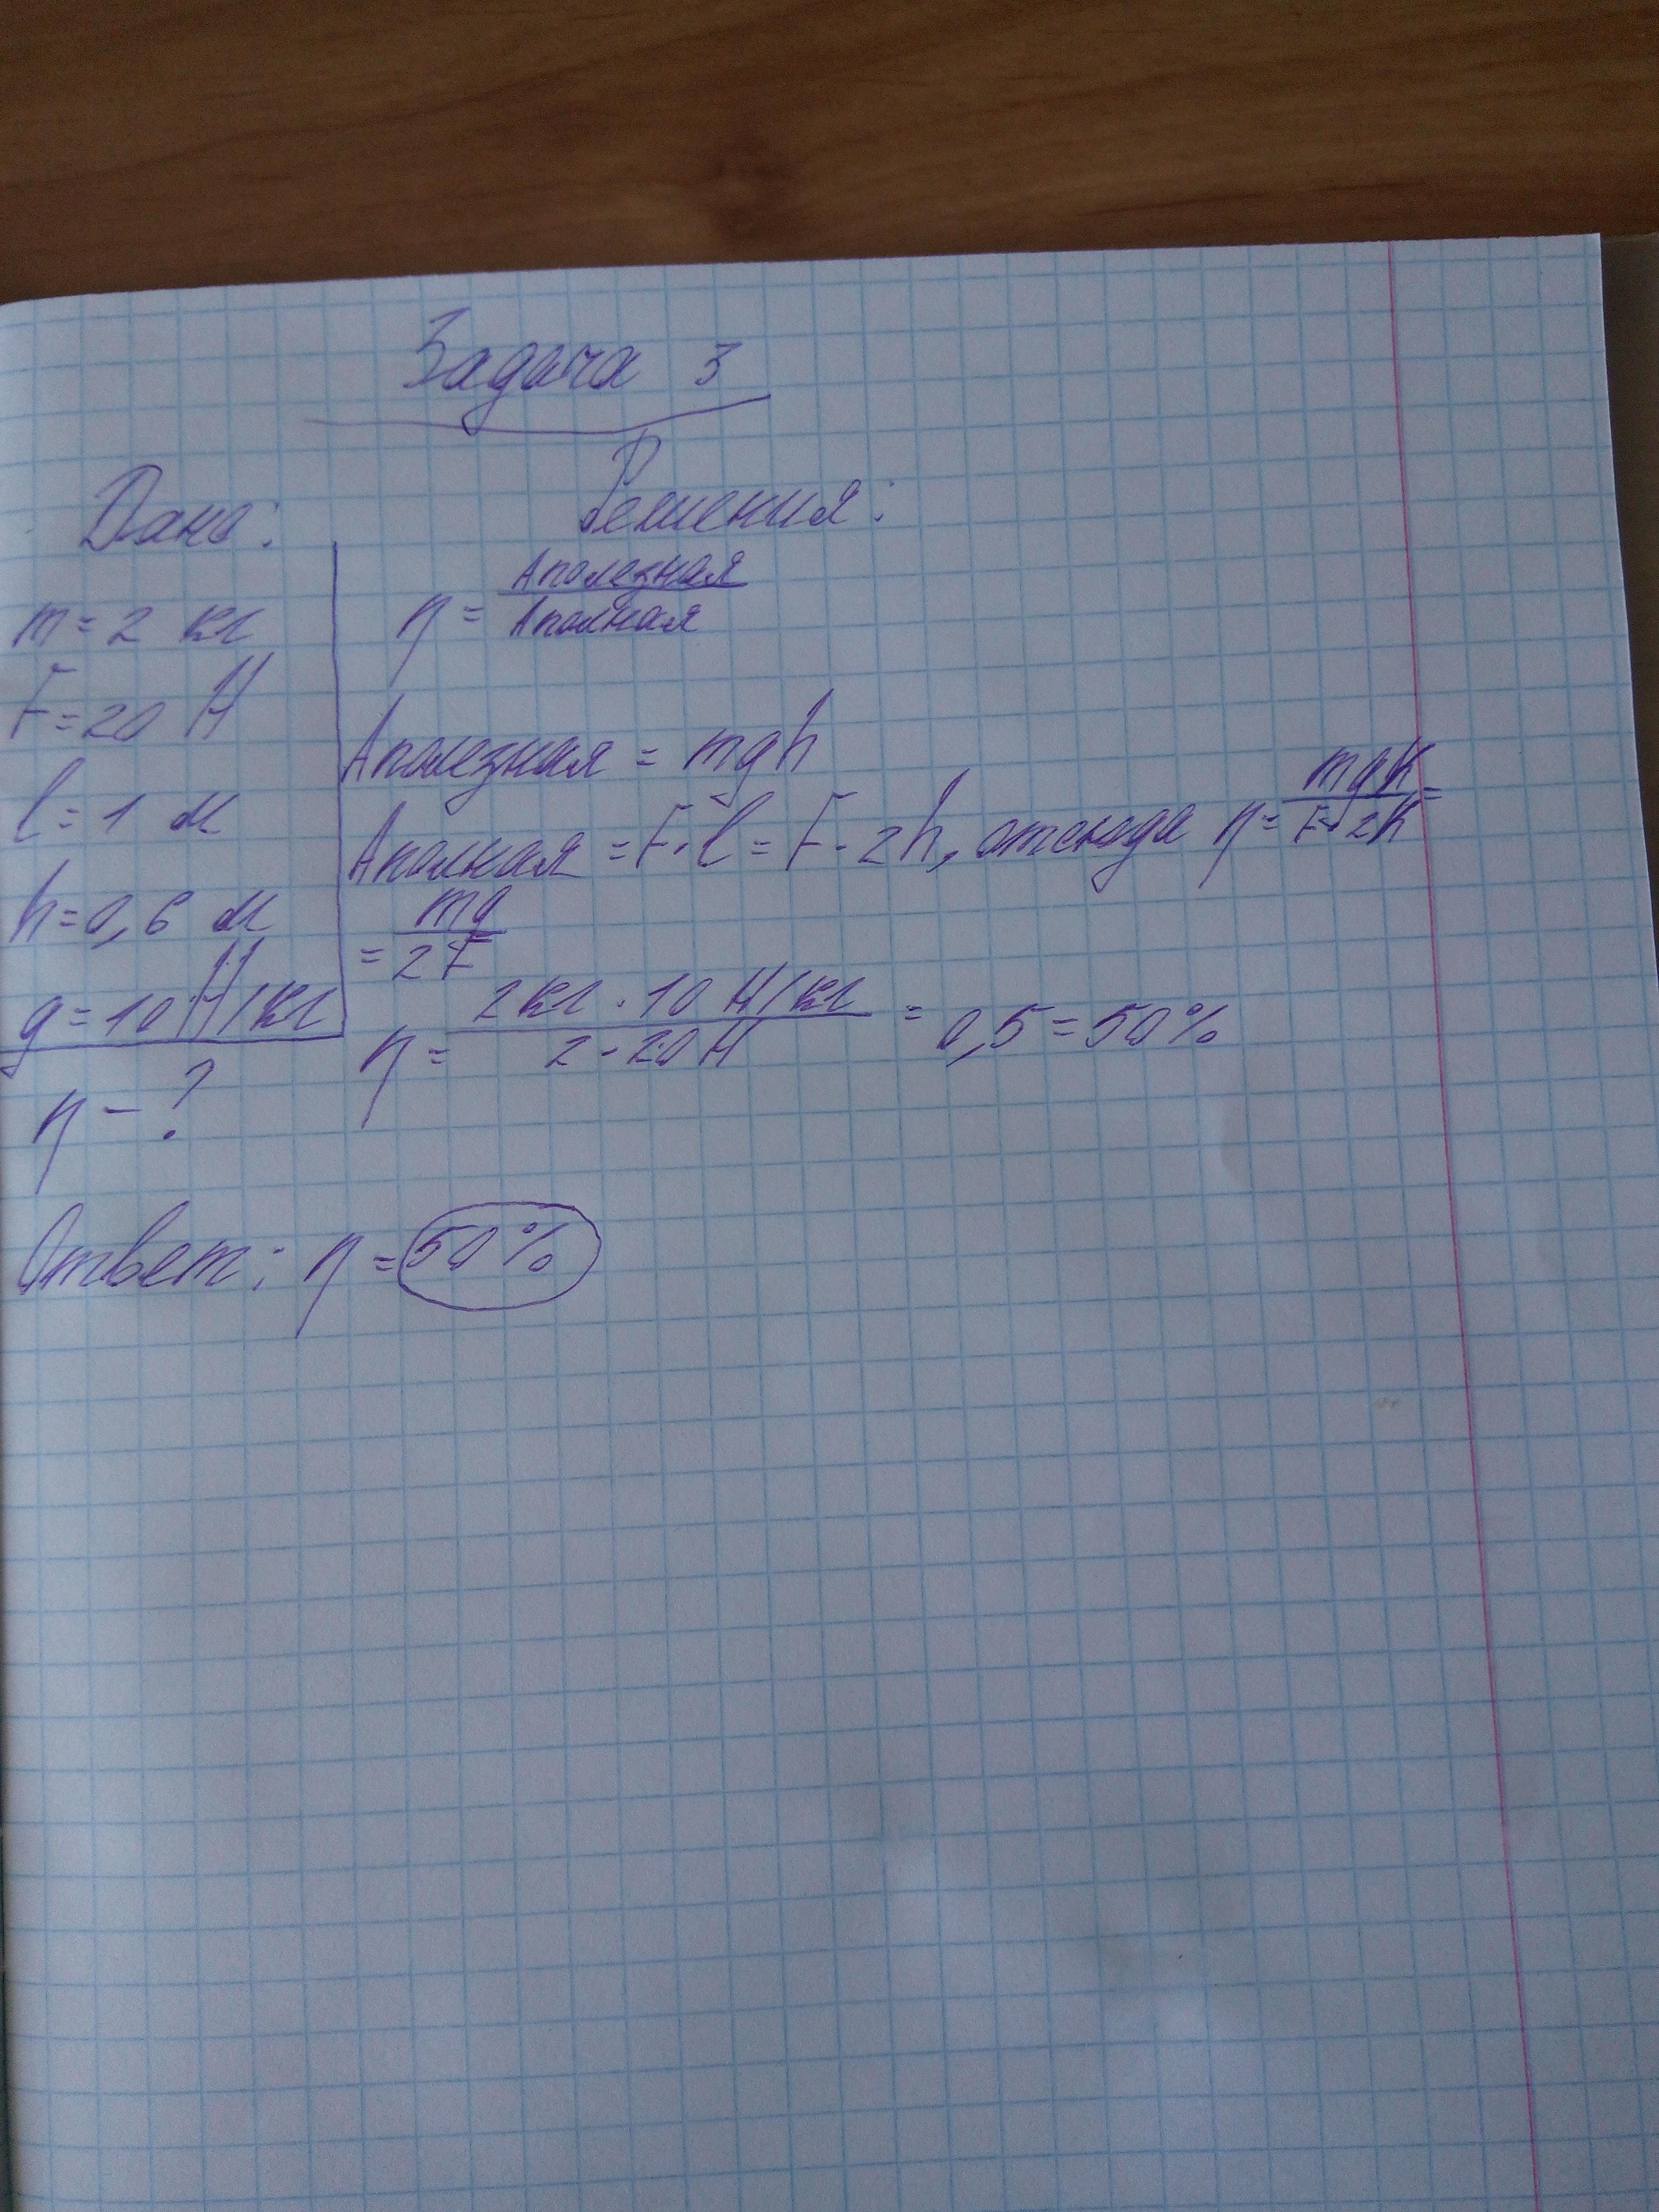 Задача 3
Дано:
Решения:
m = 2 кг
F = 20 Н
l = 1 м
h = 0,6 м
g = 10 Н/кг
η - ?
η = Aполезная / Aполная
Aполезная = mgh
Aполная = F · l = F · 2h, отсюда η = mgh / F · 2h =
= mg / 2F
η = 2 кг · 10 Н/кг / 2 · 20 Н = 0,5 = 50%
Ответ: η = 50%